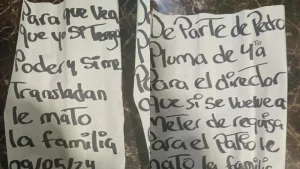 Para que Vea
que yo Si Tengo
Poder y Si me
Transladan
le mato
la familia
09/05/24
De Parte de Pedro
Pluma de 4to
Para el director
que si se vuelve a
Meter de requisa
Para el Patio le
mato la familia